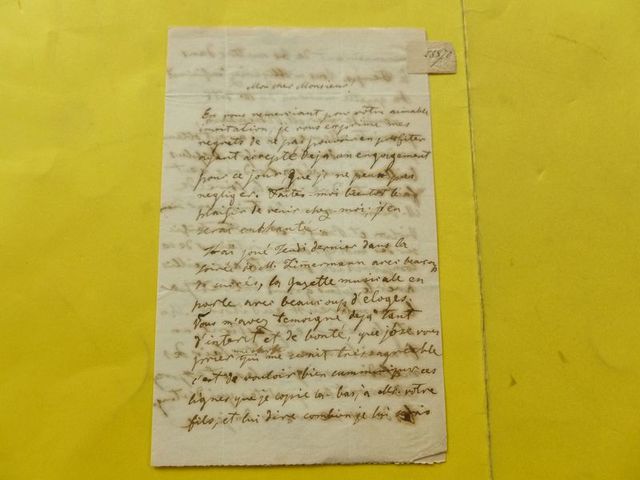 5887
Mon cher Monsieur,
En vous remerciant pour votre aimable
invitation, je vous exprime mes
regrets de ne pas pouvoir en profiter
ayant accepté déjà un engagement
pour ce jour, que je ne peux pas
négliger. Faites-moi bientôt le
plaisir de venir chez moi, j'en
serai enchanté.
J'ai joué Jeudi dernier dans la
soirée de M. Zimermann avec beaucoup
de succès, la gazette musicale en
parle avec beaucoup d'éloges.
Vous m'avez temoigné déjà tant
d'interêt et de bonté, que j'ose vous
prier qui me serait très agréable
c'est de vouloir bien communiquer ces
lignes que je copie la bas, à votre
fils, et lui dire combien je lui